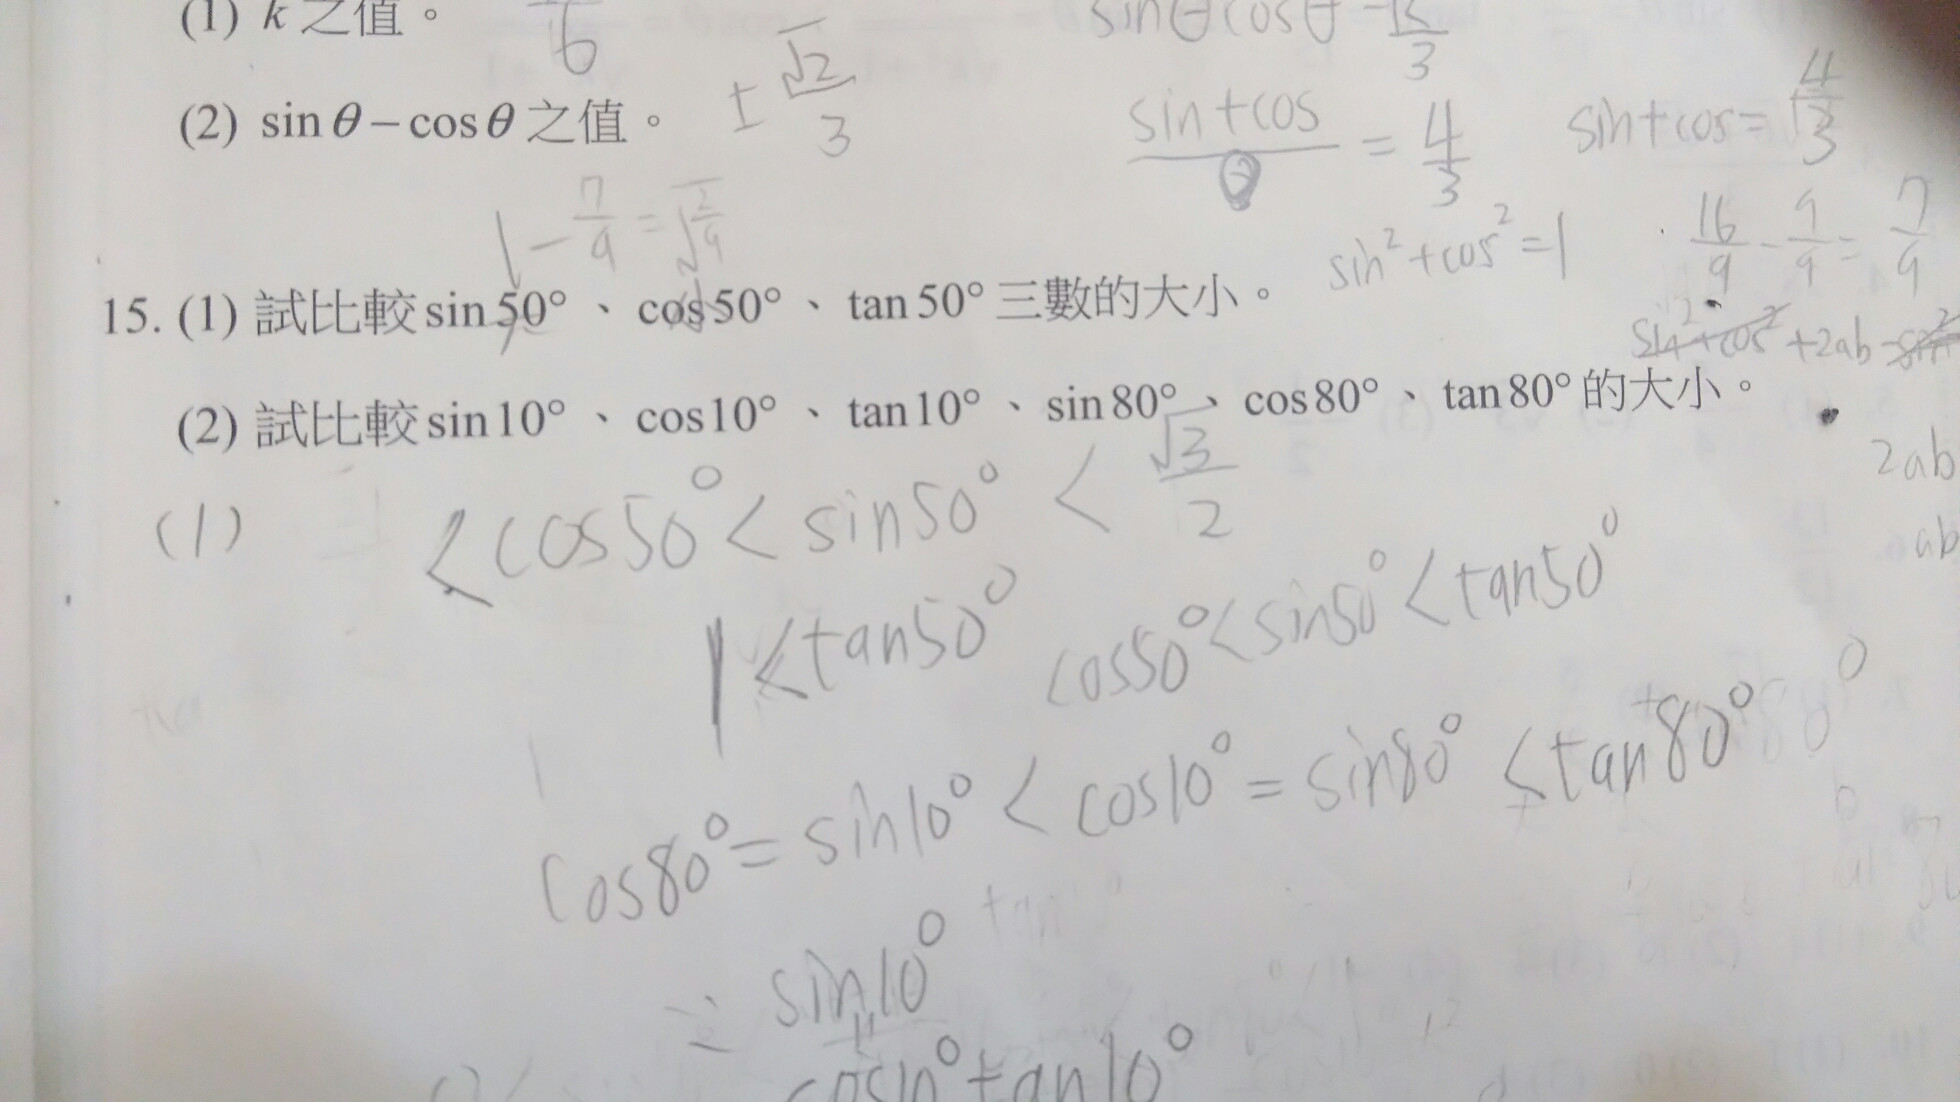 (1) k 之值。
6
sinθcosθ
3
(2) sinθ－cosθ 之值。 ± √2/3
sin+cos = 4/3
sin+cos=
1-7/9=√2/9
sin²+cos²=1
16/9-9/9=7/9
15. (1) 試比較 sin50°、cos50°、tan50° 三數的大小。
sin²+cos²+2ab-
(2) 試比較 sin10°、cos10°、tan10°、sin80°、cos80°、tan80° 的大小。
2ab
ab
(1) <cos50°<sin50°<√3/2
1<tan50° cos50°<sin50°<tan50°
cos80°=sin10°<cos10°=sin80°<tan80°
sin10°
tan10°